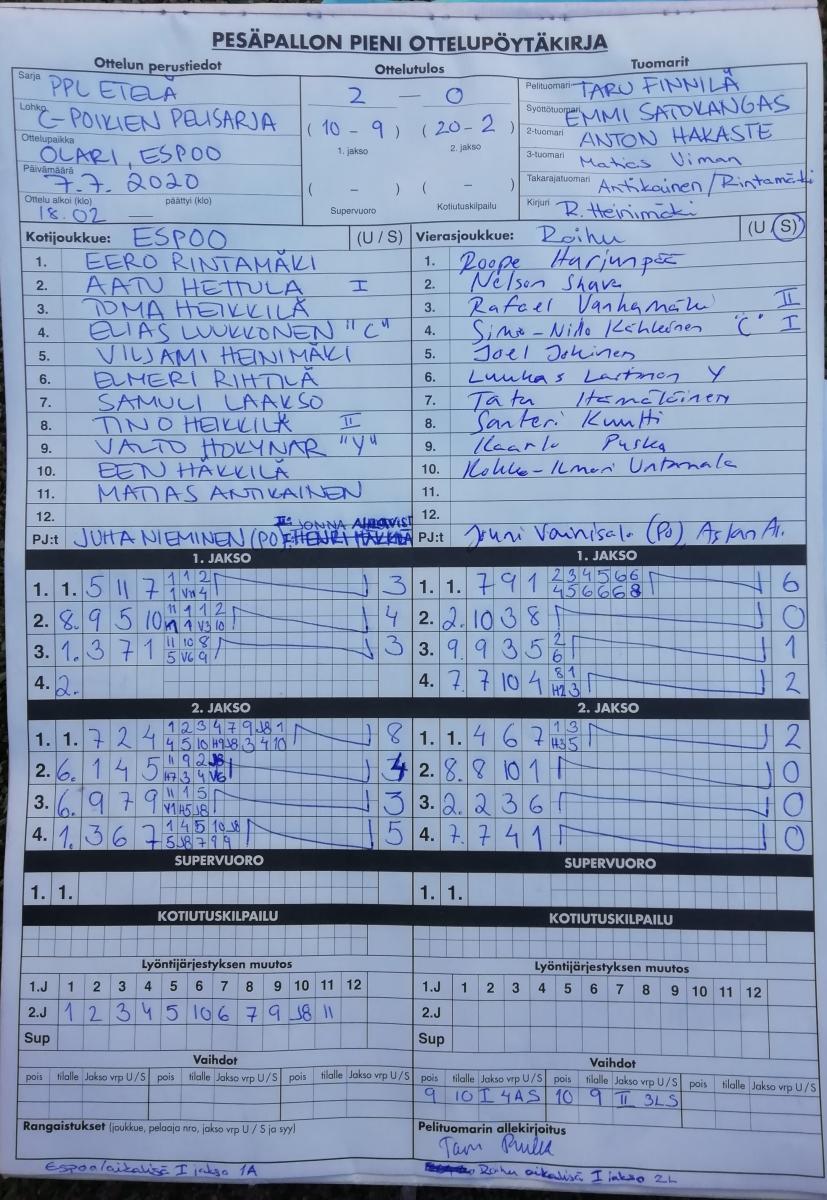 PESÄPALLON PIENI OTTELUPÖYTÄKIRJA
Ottelun perustiedot Ottelutulos Tuomarit
Sarja PPL ETELÄ
Lohko C-POIKIEN PELISARJA
Ottelupaikka OLARI, ESPOO
Päivämäärä 7.7. 2020
Ottelu alkoi (klo) päättyi (klo)
18.02 —
2 — 0
(10 - 9) (20 - 2)
1. jakso 2. jakso
( - ) ( - )
Supervuoro Kotiutuskilpailu
Pelituomari TARU FINNILÄ
Syöttötuomari EMMI SATOKANGAS
2-tuomari ANTON HAKASTE
3-tuomari Matias Viman
Takarajatuomari Antikainen/Rintamäki
Kirjuri R. Heinimäki
Kotijoukkue: ESPOO (U / S)
1. EERO RINTAMÄKI
2. AATU HETTULA I
3. TOMA HEIKKILÄ
4. ELIAS LUUKKONEN "C"
5. VILJAMI HEINIMÄKI
6. ELMERI RIHTILÄ
7. SAMULI LAAKSO
8. TINO HEIKKILÄ II
9. VALTO HOKYNAR "Y"
10. EEN HÄKKILÄ
11. MATIAS ANTIKAINEN
12.
PJ:t JUHA NIEMINEN (PO) II: JONNA
Vierasjoukkue: Roihu (U / S)
1. Roope Harjunpää
2. Nelson Shava
3. Rafael Vanhamäki II
4. Simo-Niilo Kähkönen "C" I
5. Joel Jokinen
6. Luukas Laitinen Y
7. Tatu Hämäläinen
8. Santeri Kuutti
9. Kaarlo Puska
10. Kokko-Ilmari Untamala
11.
12.
PJ:t Jouni Vainisalo (PO) Aslan A.
1. JAKSO
1. 1. 5 11 7 1 1 2 3
1 V11 4
2. 8. 9 5 10 11 1 1 2 4
1 V3 10
3. 1. 3 7 1 11 10 8 3
5 V6 9
4. 2.
1. JAKSO
1. 1. 7 9 1 2 3 4 5 6 6 6
4 5 6 6 6 8
2. 2. 10 3 8 0
3. 9. 9 3 5 2 1
6
4. 7. 7 10 4 8 1 2
H2 3
2. JAKSO
1. 1. 7 2 4 1 2 3 4 7 9 J8 1 8
4 5 10 H9 J8 3 4 10
2. 6. 1 4 5 11 9 2 J8 4
H7 3 4 V6
3. 6. 9 7 9 11 1 5 3
V1 H5 J8
4. 1. 3 6 7 1 4 5 10 J8 5
5 J8 7 9 9
2. JAKSO
1. 1. 4 6 7 1 3 2
H3 5
2. 8. 8 10 1 0
3. 2. 2 3 6 0
4. 7. 7 4 1 0
SUPERVUORO SUPERVUORO
1. 1. 1. 1.
KOTIUTUSKILPAILU KOTIUTUSKILPAILU
Lyöntijärjestyksen muutos
1.J 1 2 3 4 5 6 7 8 9 10 11 12
2.J 1 2 3 4 5 10 6 7 9 J8 11
Sup
Lyöntijärjestyksen muutos
1.J 1 2 3 4 5 6 7 8 9 10 11 12
2.J
Sup
Vaihdot
pois tilalle Jakso vrp U/S pois tilalle Jakso vrp U/S pois tilalle Jakso vrp U/S
Vaihdot
pois tilalle Jakso vrp U/S pois tilalle Jakso vrp U/S pois tilalle Jakso vrp U/S
9 10 I 4AS 10 9 II 3LS
Rangaistukset (joukkue, pelaaja nro, jakso vrp U / S ja syy)
Pelituomarin allekirjoitus
Espoo/aikalisä I jakso 1A
Roihu aikalisä I jakso 2L